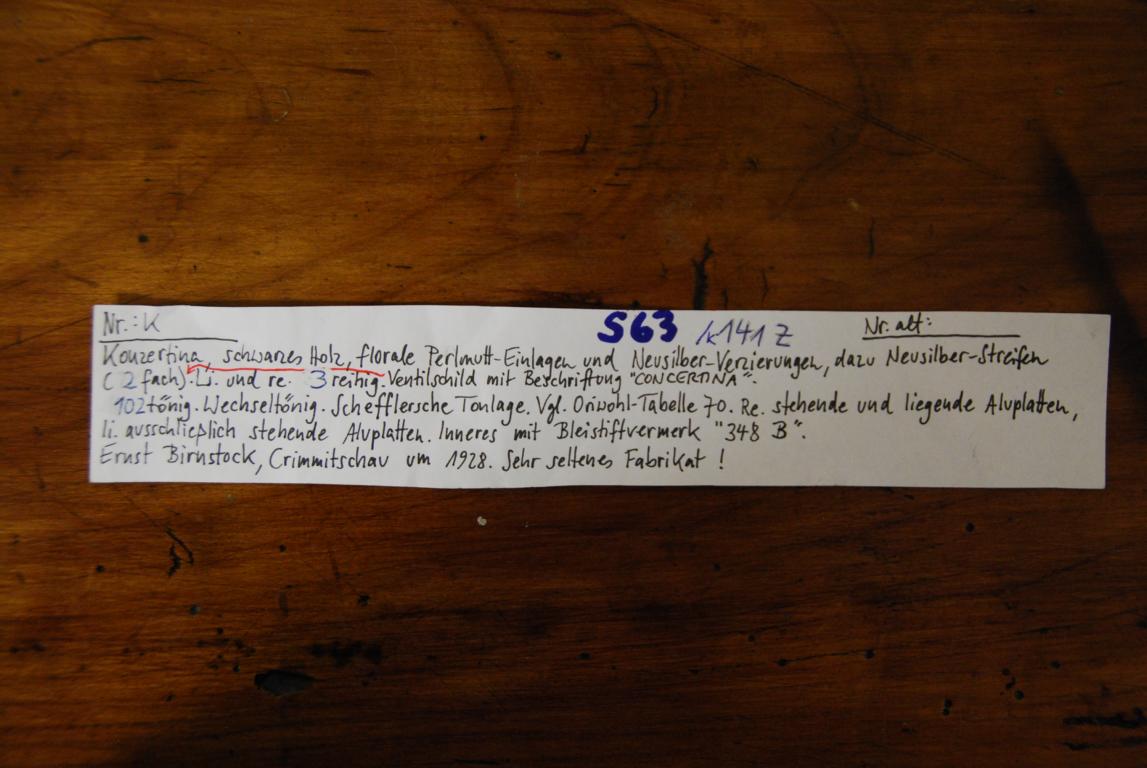 Nr.: K S63 k141 Z Nr. alt:
Konzertina, schwarzes Holz, florale Perlmutt-Einlagen und Neusilber-Verzierungen, dazu Neusilber-Streifen
(2 fach). Li. und re. 3 reihig. Ventilschild mit Beschriftung "CONCERTINA".
102tönig. Wechseltönig. Schefflersche Tonlage. Vgl. Oriwohl-Tabelle 70. Re. stehende und liegende Aluplatten,
li. ausschließlich stehende Aluplatten. Inneres mit Bleistiftvermerk "348 B".
Ernst Birnstock, Crimmitschau um 1928. Sehr seltenes Fabrikat !